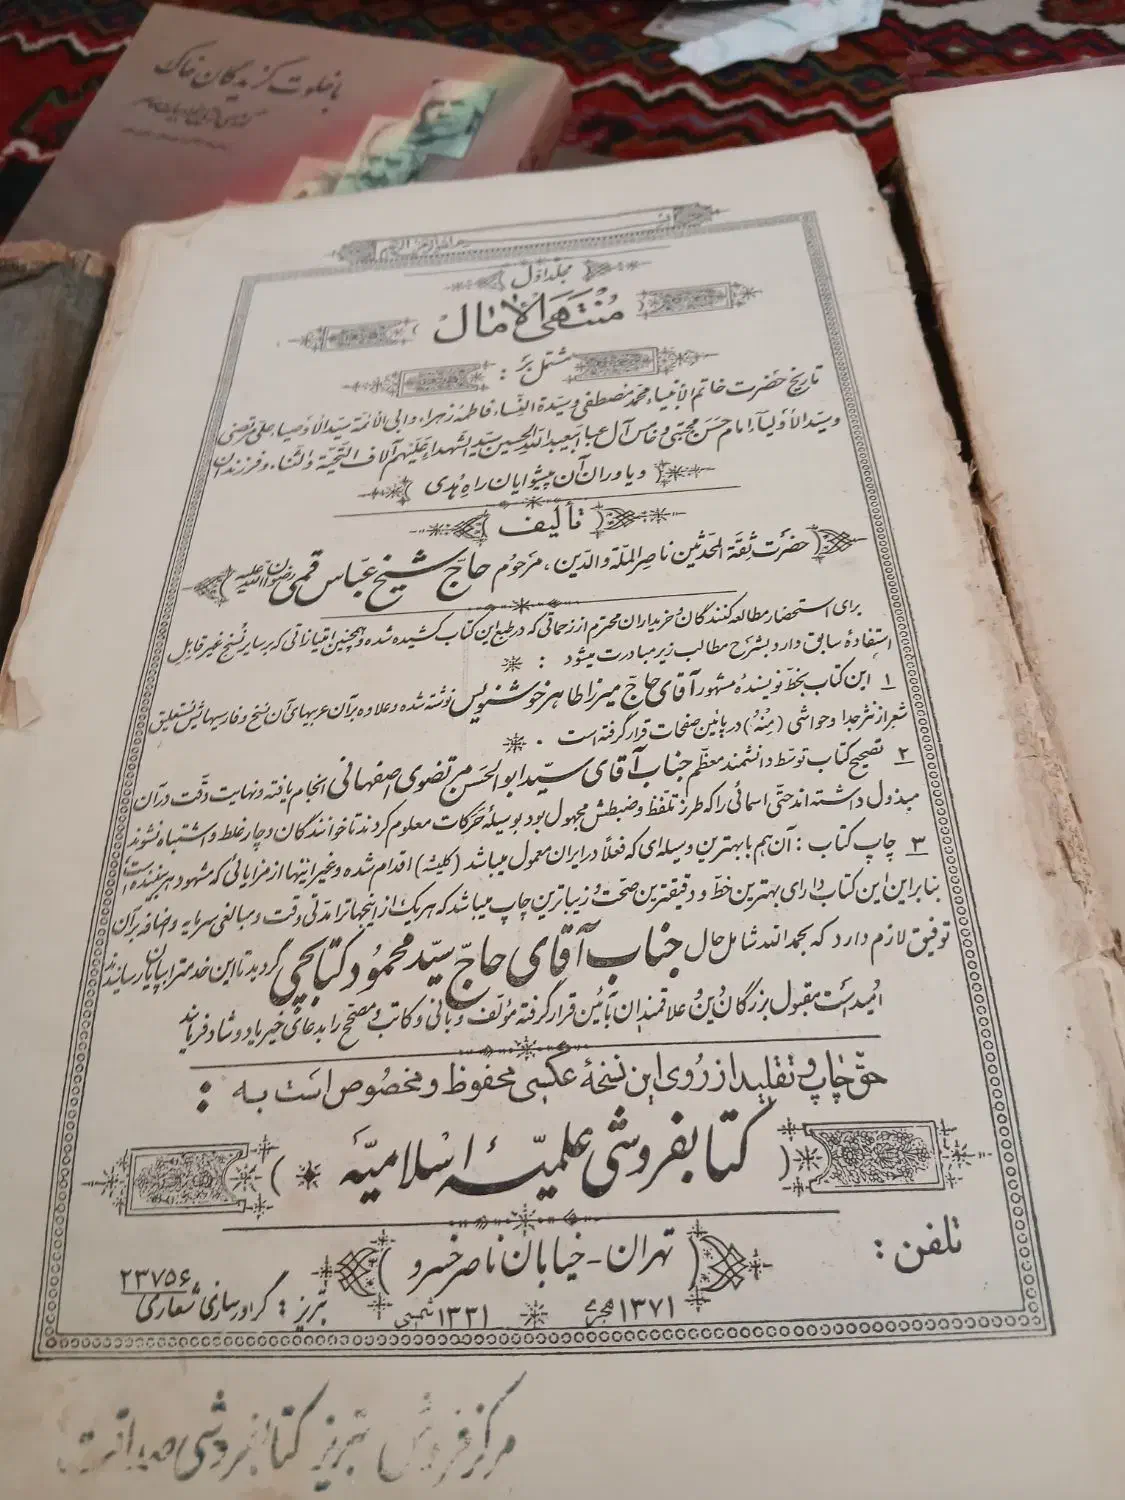 با خلوت گزیدگان خاک
جلد اول
مُنْتَهَی الْآمال
مشتمل بر :
تاریخ حضرت خاتم الأنبیاء محمد مصطفی و سیدة النساء فاطمه زهراء و ابی الائمة سید الأوصیاء علی مرتضی
و سید الأولیاء امام حسن مجتبی و خامس آل عبا ابیعبدالله الحسین سید الشهداء علیهم آلاف التحیة والثناء و فرزندان
و یاوران آن پیشوایان راه هُدی
تألیف
حضرت ثقة المحدثین ناصر الملة والدین ، مرحوم حاج شیخ عباس قمی رضوان الله علیه
برای استحضار مطالعه کنندگان و خریداران محترم از زحماتی که در طبع این کتاب کشیده شده و همچنین امتیازاتی که بر سایر نُسَخ غیر قابل
استفادهٔ سابق دارد بشرح مطالب زیر مبادرت میشود :
۱ این کتاب بخط نویسندهٔ مشهور آقای حاج میرزا طاهر خوشنویس نوشته شده و علاوه بر آن عربیهای آن نسخ و فارسیهایش نستعلیق
شعر از نثر جدا و حواشی (مِنْهُ) در پائین صفحات قرار گرفته است .
۲ تصحیح کتاب توسط دانشمند معظم جناب آقای سید ابوالحسن مرتضوی اصفهانی انجام یافته و نهایت دقت در آن
مبذول داشته اند حتی اسمائی را که طرز تلفظ و ضبطش مجهول بود بوسیلهٔ حَرَکات معلوم کردند تا خوانندگان دچار غلط و اشتباه نشوند
۳ چاپ کتاب : آن هم با بهترین وسیله‌ای که فعلاً در ایران معمول میباشد (کلیشه) اقدام شده و غیر اینها از مزایائی که مشهود هر بیننده است
بنابراین این کتاب دارای بهترین خط و دقیقترین صحت و زیباترین چاپ میباشد که هر یک از اینها را مدتی وقت و مبالغی سرمایه و اضافه بر آن
توفیق لازم دارد که بحمد الله شامل حال جناب آقای حاج سید محمود کتابچی گردید تا این خدمت را بپایان رسانیدند
امید است مقبول بزرگان دین و علاقمندان بآئین قرار گرفته مؤلف و بانی و کاتب و مصحح را بدعای خیر یاد و شاد فرمایند
حق چاپ و تقلید از روی این نسخهٔ عکسی محفوظ و مخصوص است به :
( کتابفروشی علمیهٔ اسلامیه )
تهران - خیابان ناصرخسرو
تلفن :
۲۳۷۵۶
۱۳۷۱ هجری ۱۳۳۱ شمسی
تبریز : گراورسازی شعاری
مرکز فروش تبریز کتابفروشی